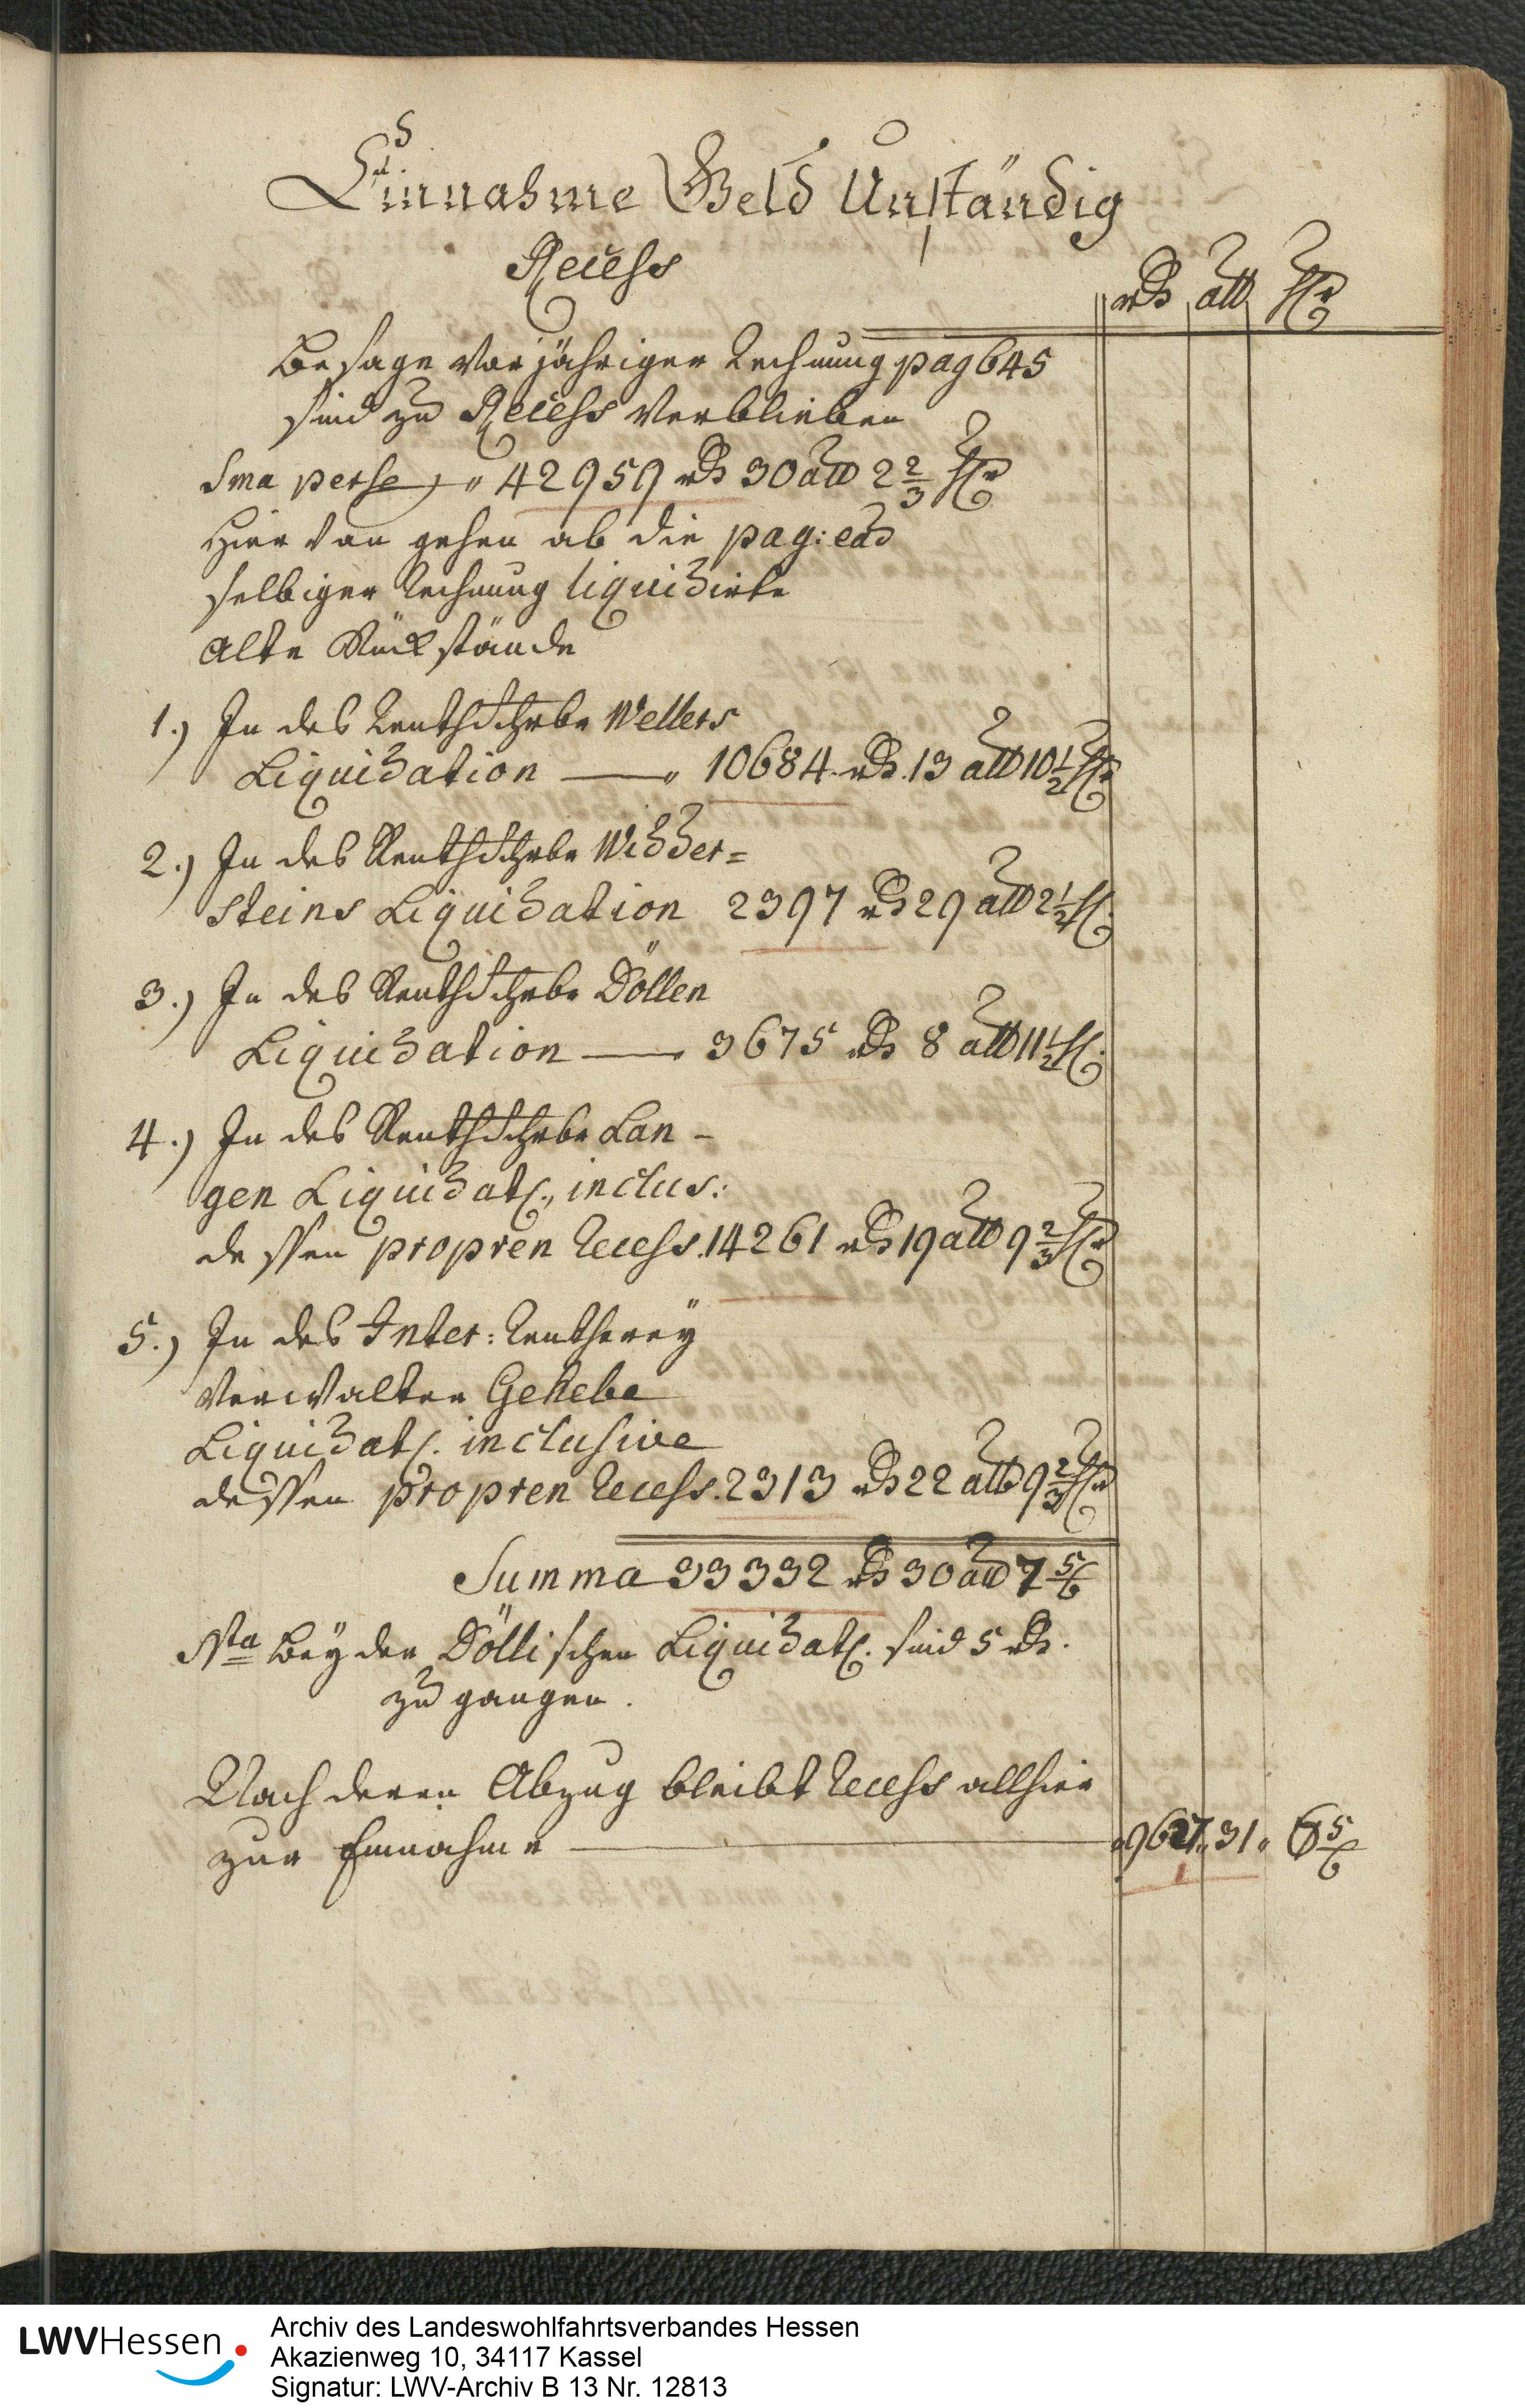 Einnahme Geld Unständig
Recess
rth alb hlr
Besage vorjähriger Rechnung pag 645
sind zu Recess verblieben
Sma per se „ 42959 rth 30 alb 2 2/3 hlr
Hier von gehen ab die pag: ead
selbiger Rechnung liquidirte
alte Rückstände
1.) In des Renthschrbr Wellers
Liquidation — „ 10684 rth. 13 alb 10 1/2 hlr
2.) In des Renthschrbr Widder=
steins Liquidation 2397 rth 29 alb 2 1/2 hl.
3.) In des Renthschrbr Döllen
Liquidation — 3675 rth 8 alb 11 1/2 hl.
4.) In des Renthschrbr Lan-
gen Liquidat., inclus:
dessen propren Recess. 14261 rth 19 alb 9 2/3 hlr
5.) In des Inter: Rentherey
Verwalter Gekebe
Liquidat. inclusive
dessen propren Recess. 2313 rth 22 alb 9 2/3 hlr
Summa 33332 rth 30 alb 7 5/6
Nta Bey der Döllischen Liquidat. sind 5 rth.
zu gangen.
Nach deren Abzug bleibt Recess allhier
zur Einnahme — 9627. 31. 6 5/6
LWVHessen
Archiv des Landeswohlfahrtsverbandes Hessen
Akazienweg 10, 34117 Kassel
Signatur: LWV-Archiv B 13 Nr. 12813